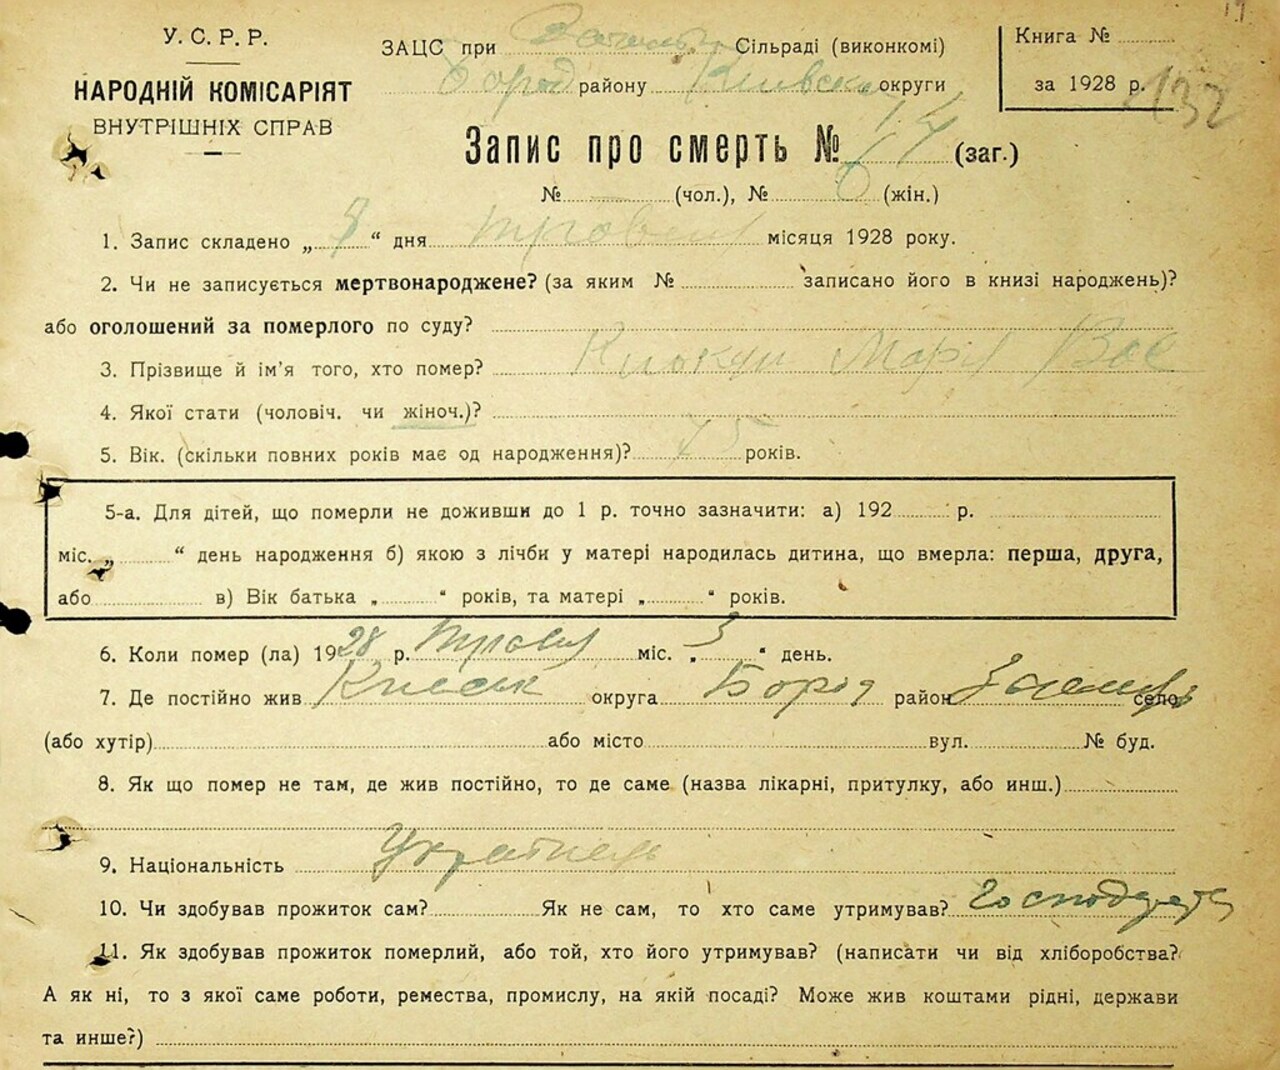 У. С. Р. Р.
НАРОДНІЙ КОМІСАРІЯТ
ВНУТРІШНІХ СПРАВ
ЗАЦС при Сільраді (виконкомі)
Бород району Київської округи
Книга №
за 1928 р. 132
Запис про смерть № 14 (заг.)
№ — (чол.), № 6 (жін.)
1. Запис складено „ 8 “ дня травня місяця 1928 року.
2. Чи не записується мертвонароджене? (за яким № записано його в книзі народжень)?
або оголошений за померлого по суду?
3. Прізвище й ім'я того, хто помер? Марія Вас
4. Якої стати (чоловіч. чи жіноч.)?
5. Вік. (скільки повних років має од народження)? 75 років.
5-а. Для дітей, що померли не доживши до 1 р. точно зазначити: а) 192 р.
міс. „ “ день народження б) якою з лічби у матері народилась дитина, що вмерла: перша, друга,
або в) Вік батька „ “ років, та матері „ “ років.
6. Коли помер (ла) 1928 р. травня міс. „ 3 “ день.
7. Де постійно жив Київськ округа Бород район село
(або хутір) або місто вул. № буд.
8. Як що помер не там, де жив постійно, то де саме (назва лікарні, притулку, або инш.)
9. Національність Українець
10. Чи здобував прожиток сам? Як не сам, то хто саме утримував?
11. Як здобував прожиток померлий, або той, хто його утримував? (написати чи від хліборобства?
А як ні, то з якої саме роботи, ремества, промислу, на якій посаді? Може жив коштами рідні, держави
та инше?)